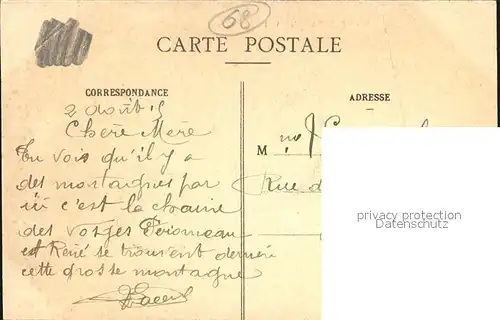 68
CARTE POSTALE
CORRESPONDANCE
ADRESSE
2 Août 15
Chere Mère
Tu vois qu'il y a
des montaignes par
ici c'est la chaine
des Vosges
est René se trouvent derriere
cette grosse montagne
M me
Rue d
privacy protection
Datenschutz